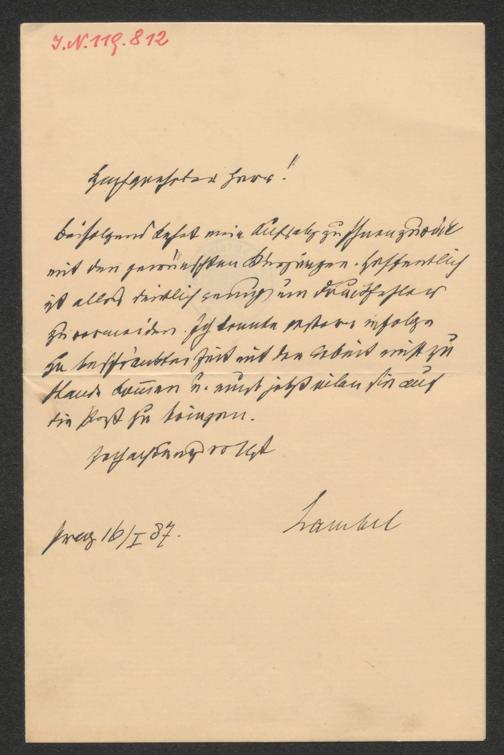 J.N. 119.812
Hochgeehrter Herr!
Beifolgend kehrt mein Aufsatz zu Ihnen zurück
mit den gewünschten Kürzungen. Hoffentlich
ist alles deutlich genug um Druckfehler
zu vermeiden. Ich konnte gestern infolge
zu beschränkter Zeit mit der Arbeit nicht zu
Stande kommen u. muß jetzt eilen sie auf
die Post zu bringen.
Hochachtungsvollst
Lambel
Prag 16/I 87.